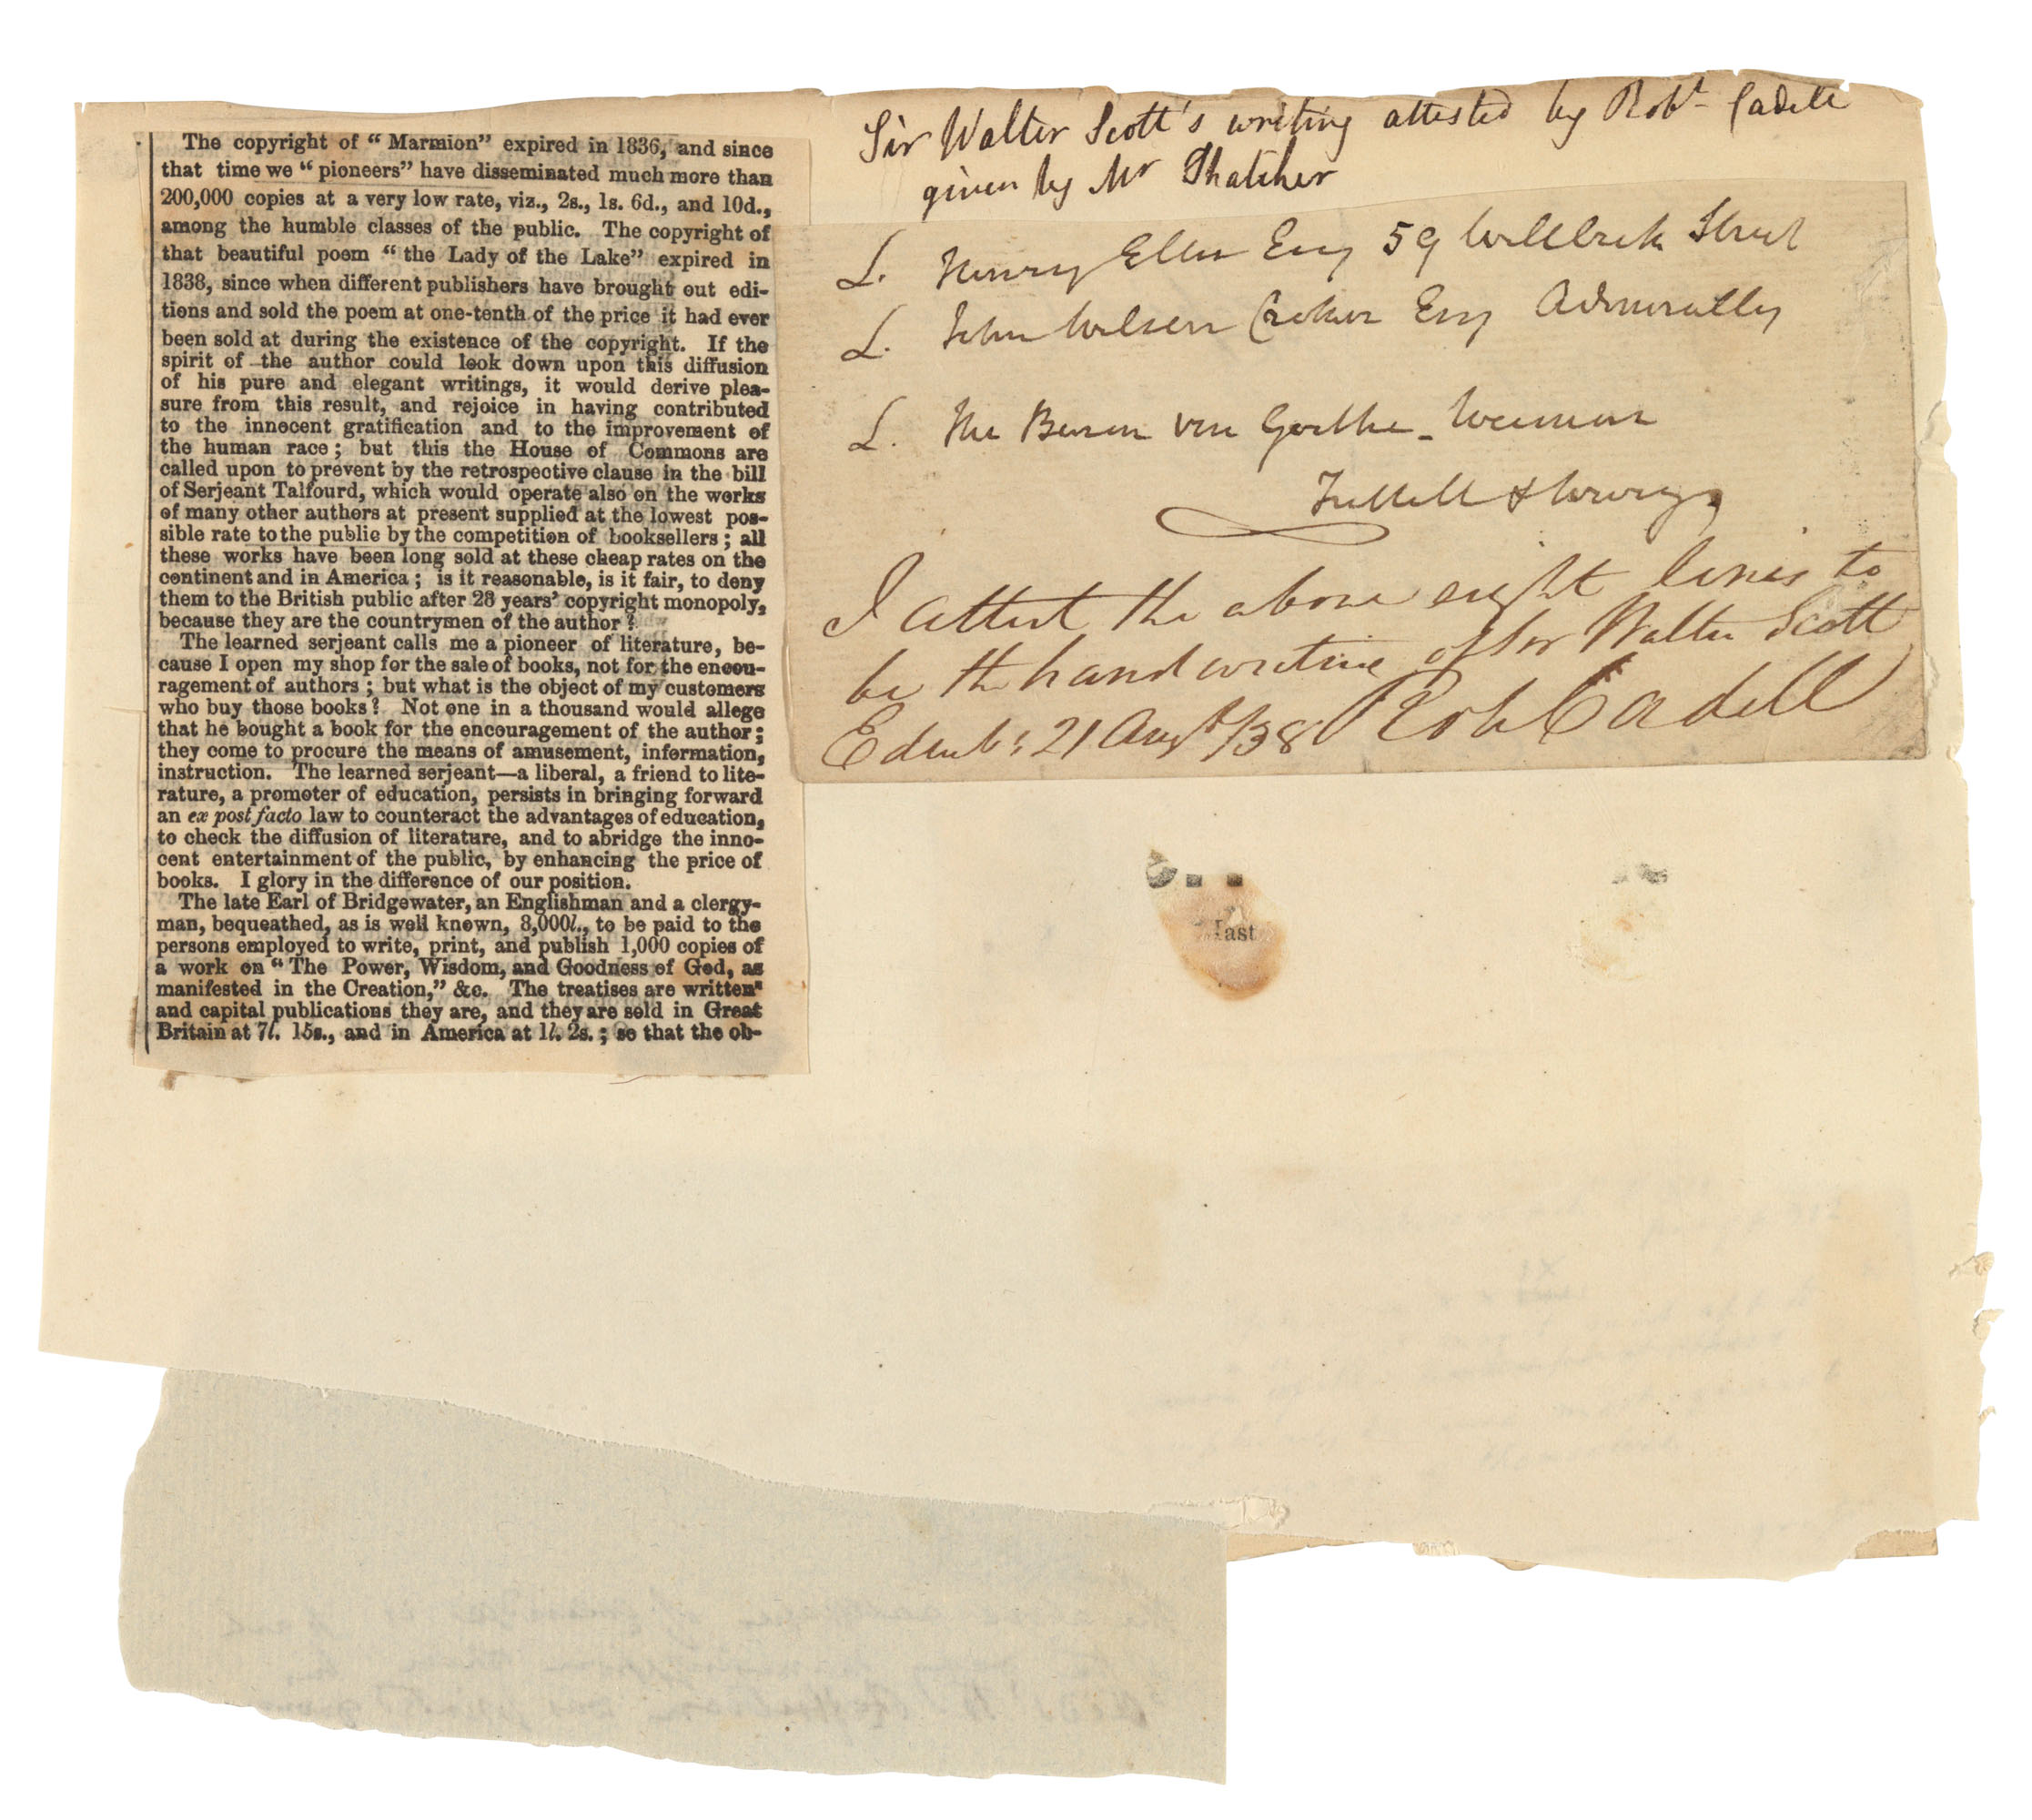 The copyright of “Marmion” expired in 1836, and since
that time we “pioneers” have disseminated much more than
200,000 copies at a very low rate, viz., 2s., 1s. 6d., and 10d.,
among the humble classes of the public. The copyright of
that beautiful poem “the Lady of the Lake” expired in
1838, since when different publishers have brought out edi-
tions and sold the poem at one-tenth of the price it had ever
been sold at during the existence of the copyright. If the
spirit of the author could look down upon this diffusion
of his pure and elegant writings, it would derive plea-
sure from this result, and rejoice in having contributed
to the innocent gratification and to the improvement of
the human race; but this the House of Commons are
called upon to prevent by the retrospective clause in the bill
of Serjeant Talfourd, which would operate also on the works
of many other authors at present supplied at the lowest pos-
sible rate to the public by the competition of booksellers; all
these works have been long sold at these cheap rates on the
continent and in America; is it reasonable, is it fair, to deny
them to the British public after 28 years’ copyright monopoly,
because they are the countrymen of the author?
The learned serjeant calls me a pioneer of literature, be-
cause I open my shop for the sale of books, not for the encou-
ragement of authors; but what is the object of my customers
who buy those books? Not one in a thousand would allege
that he bought a book for the encouragement of the author;
they come to procure the means of amusement, information,
instruction. The learned serjeant—a liberal, a friend to lite-
rature, a promoter of education, persists in bringing forward
an ex post facto law to counteract the advantages of education,
to check the diffusion of literature, and to abridge the inno-
cent entertainment of the public, by enhancing the price of
books. I glory in the difference of our position.
The late Earl of Bridgewater, an Englishman and a clergy-
man, bequeathed, as is well known, 8,000l., to be paid to the
persons employed to write, print, and publish 1,000 copies of
a work on “The Power, Wisdom, and Goodness of God, as
manifested in the Creation,” &c. The treatises are written
and capital publications they are, and they are sold in Great
Britain at 7l. 15s., and in America at 1l. 2s.; so that the ob-
Sir Walter Scott's writing attested by Robt Cadell
given by Mr Thatcher
L. Henry Ellis Esq 59 Wellbeck Street
L. John Wilson Croker Esq Admiralty
L. The Baron von Goethe - Weimar
I attest the above eight lines to
be the handwriting of Sir Walter Scott
Edinb: 21 Augt/38 Robt Cadell